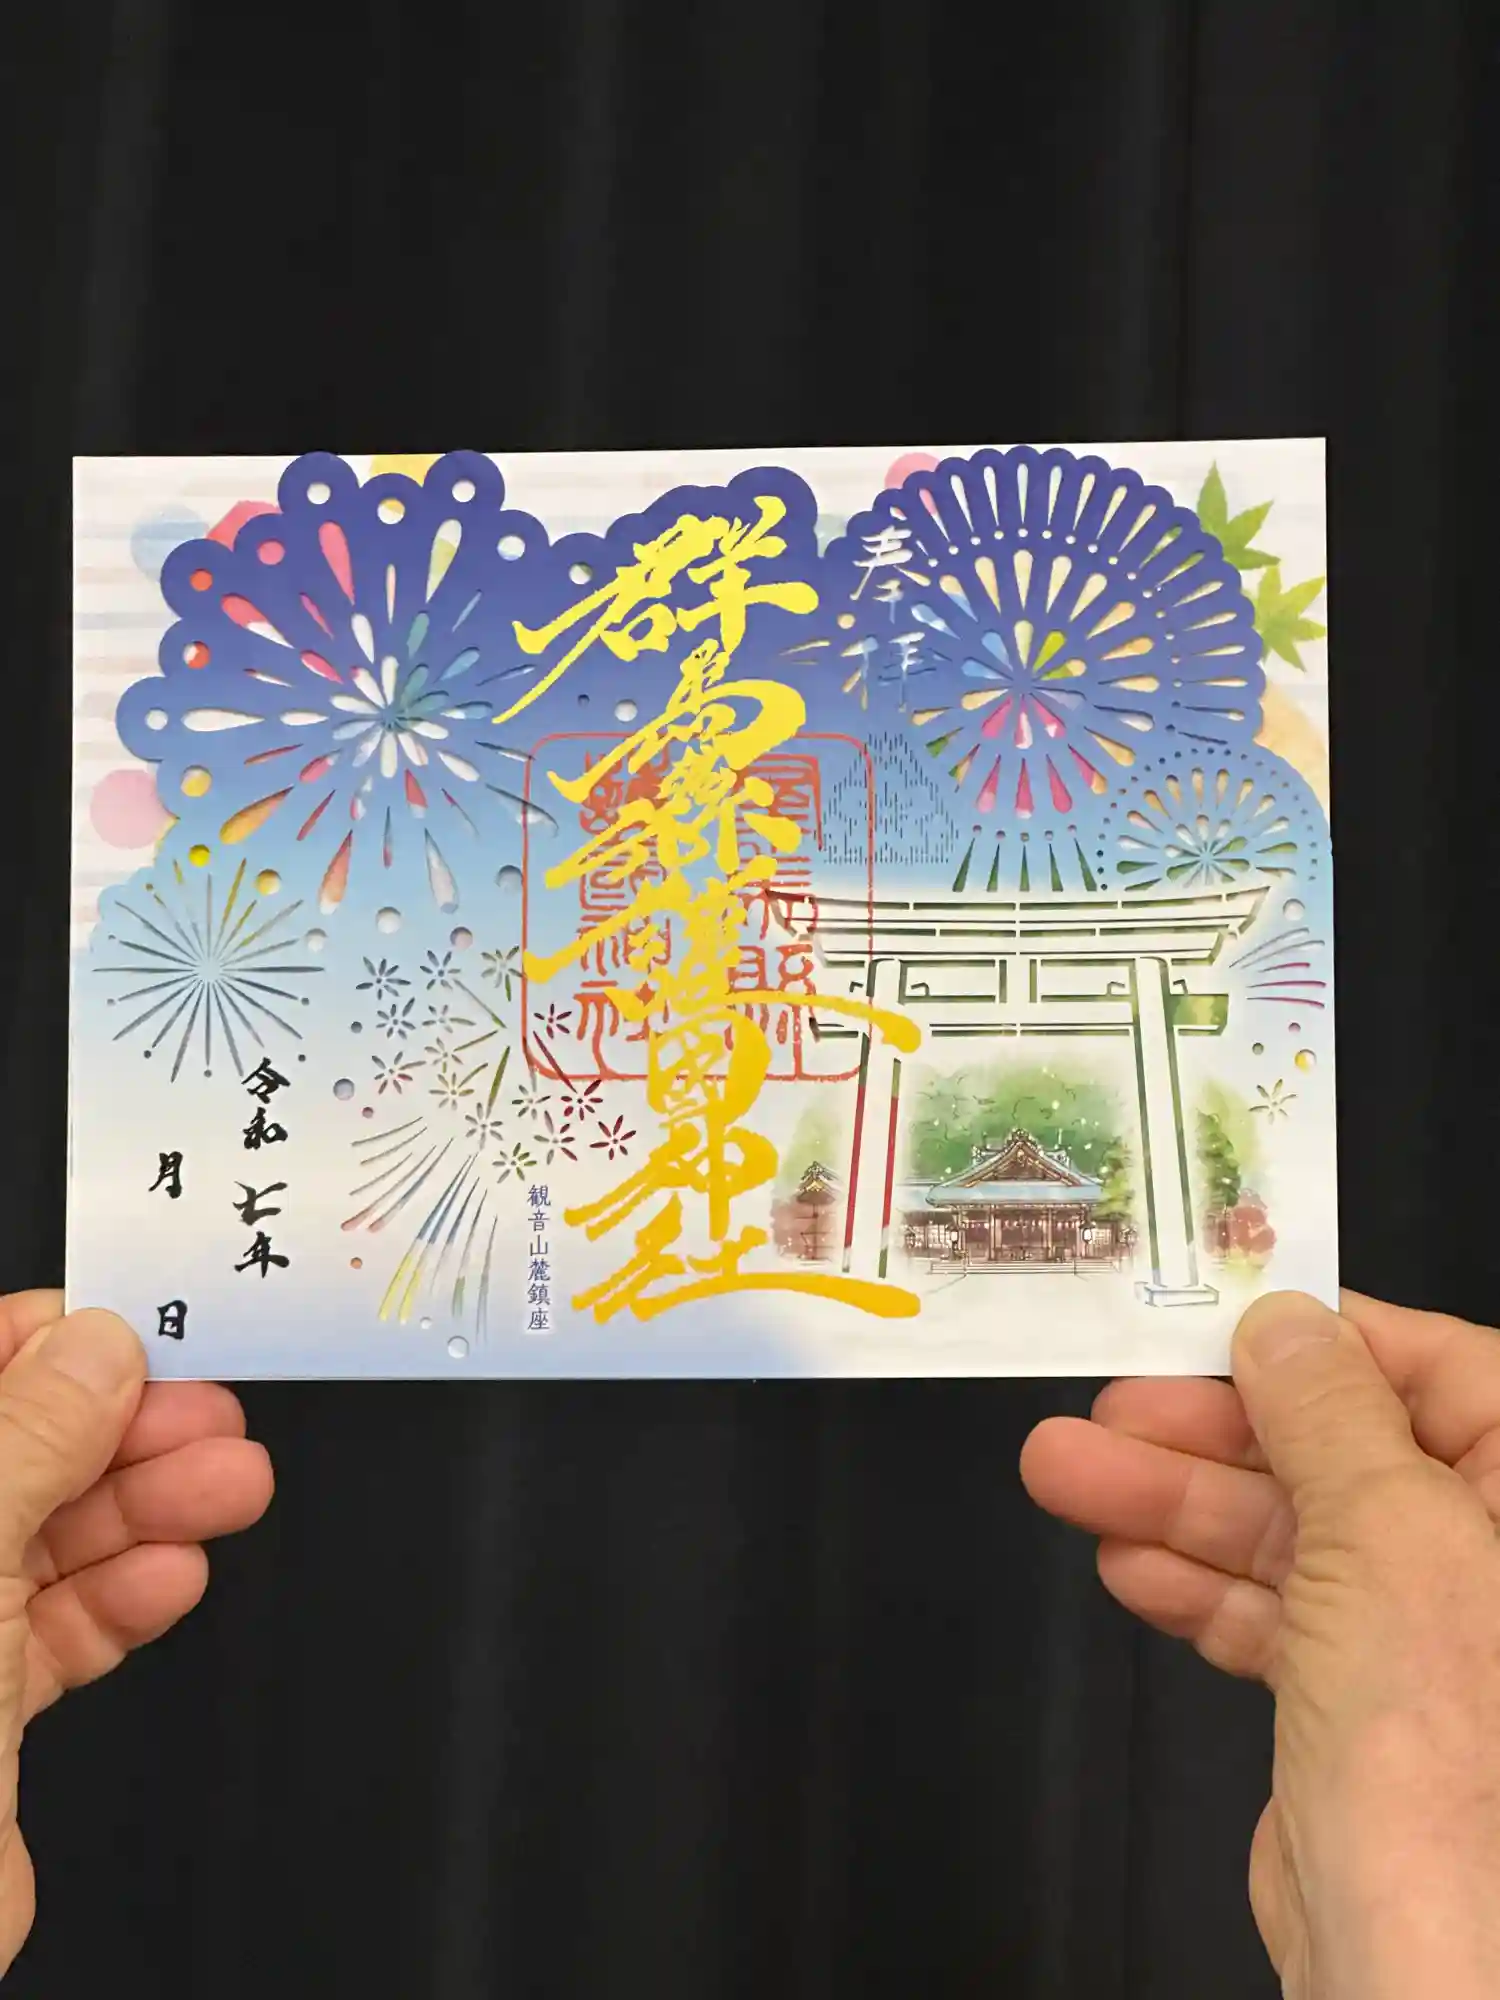 奉拝
群馬縣護国神社
観音山麓鎮座
令和七年
月 日